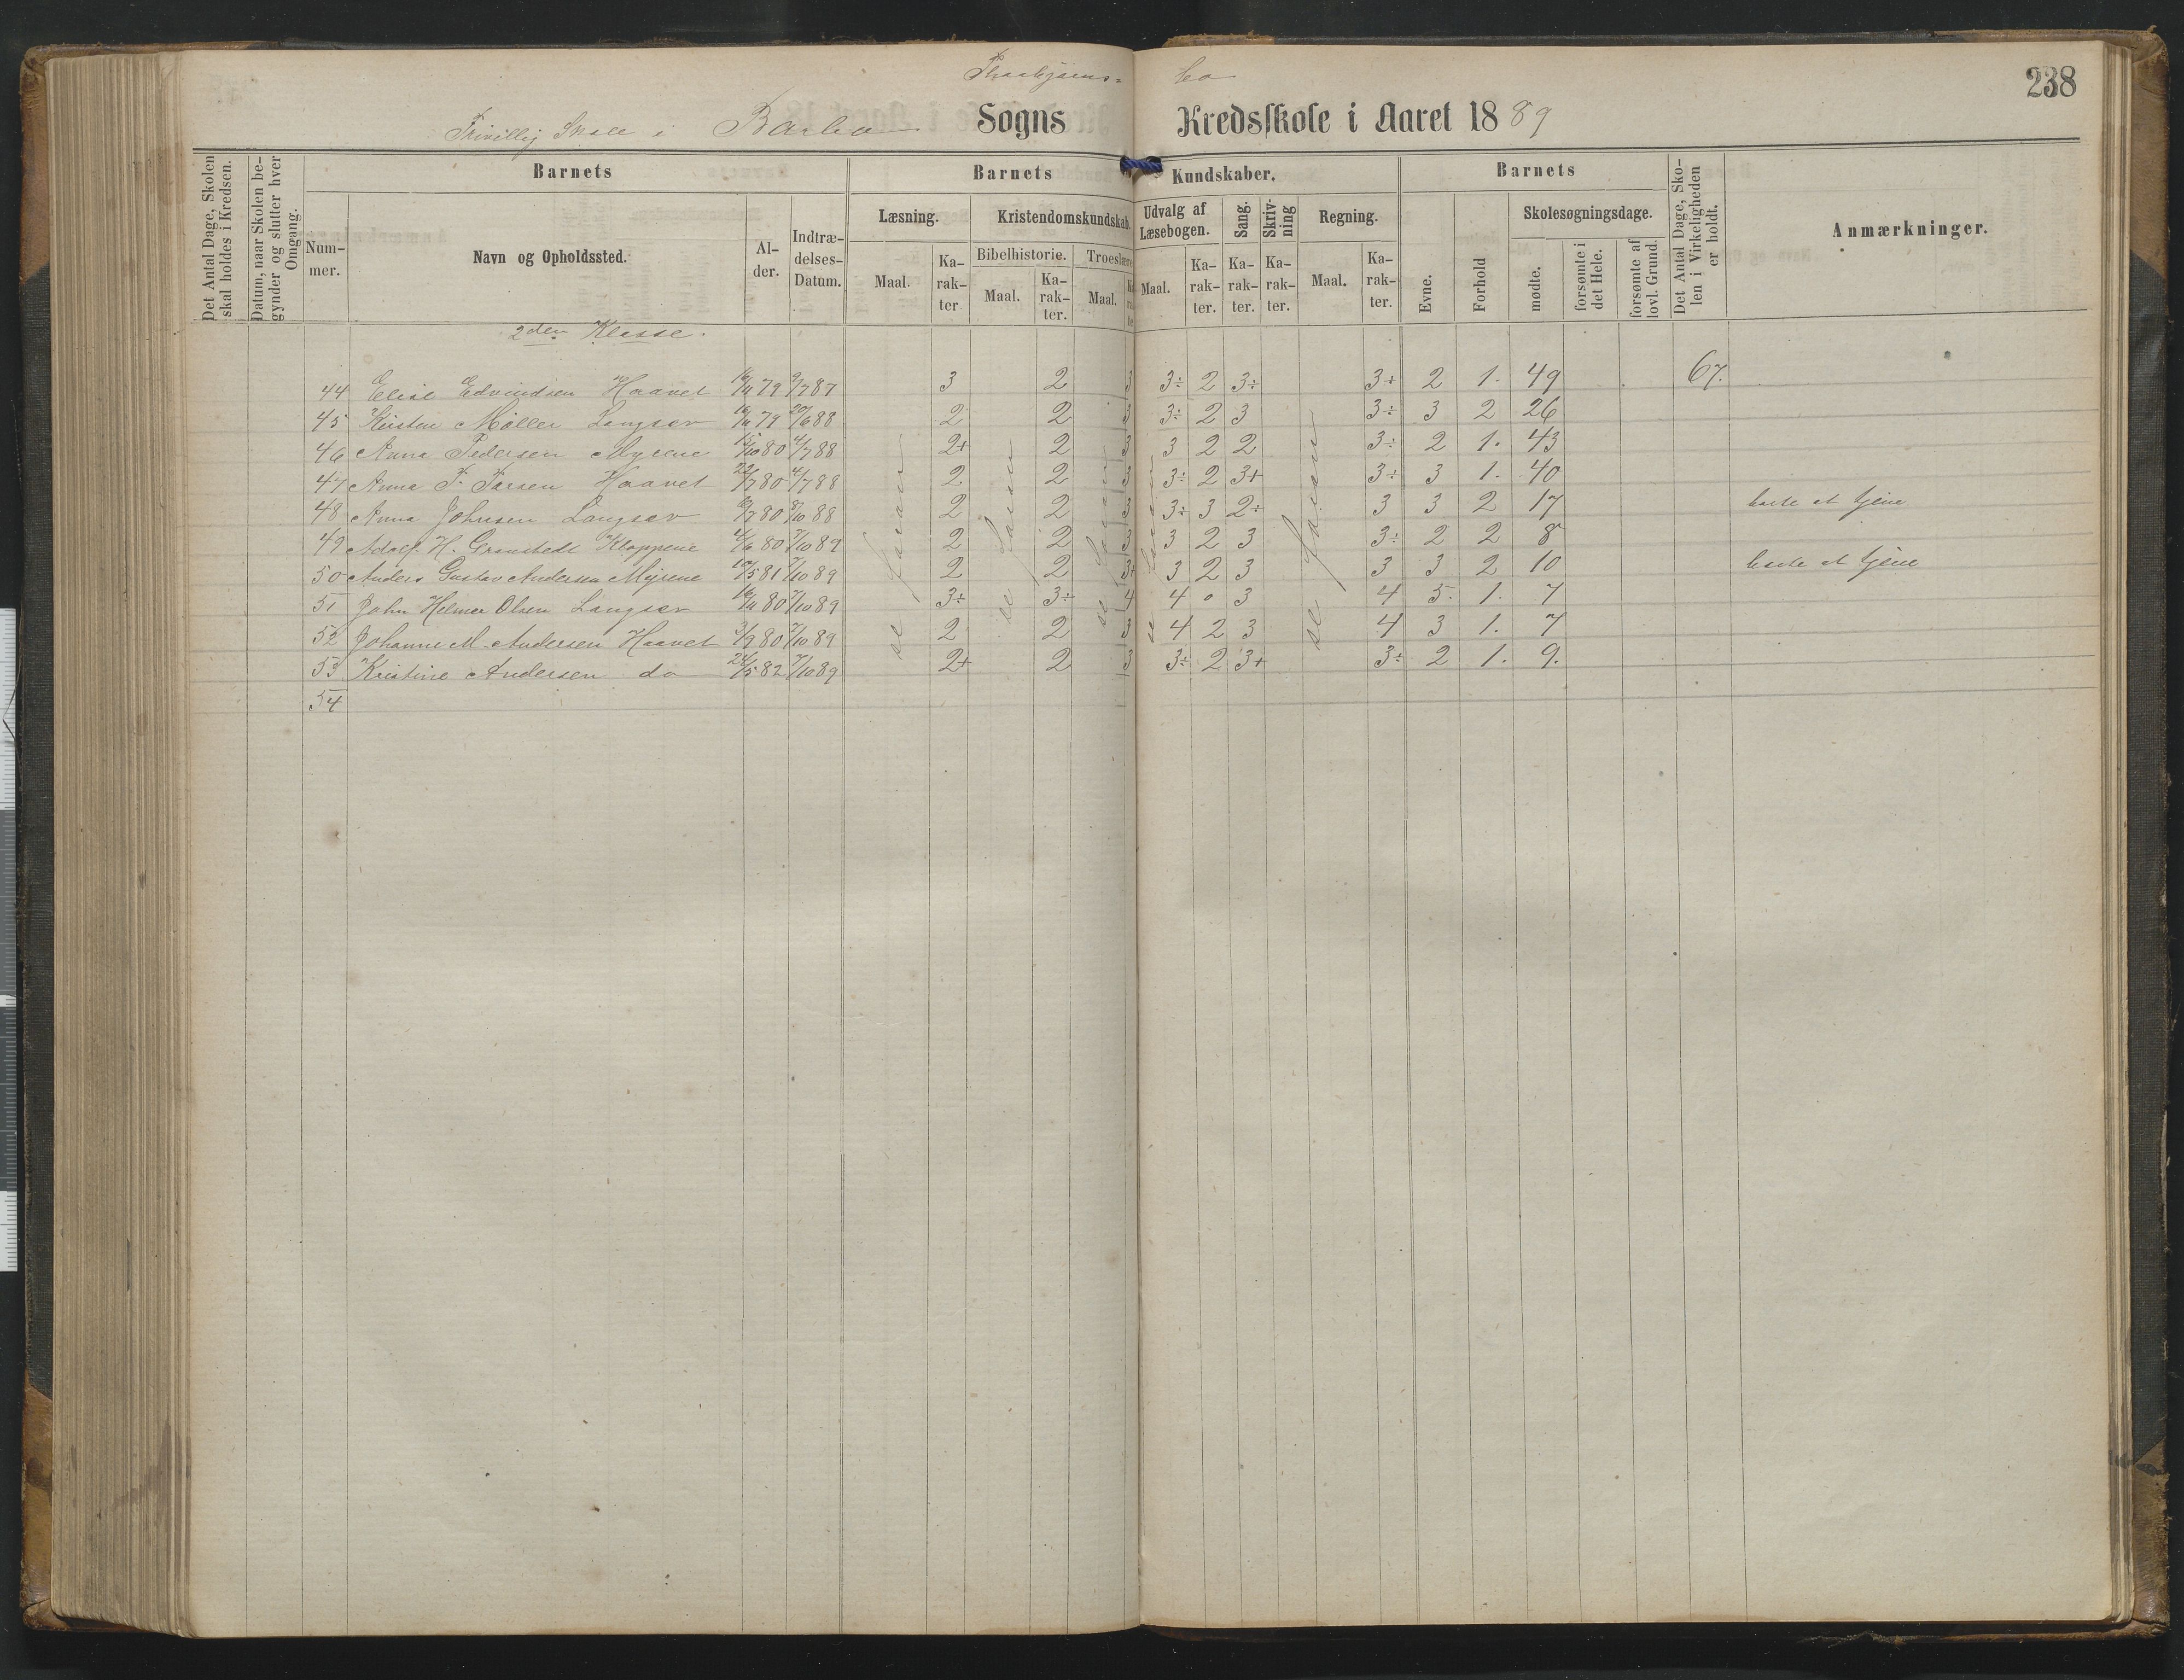 238
Frivillig Skole i Barbo Sogns Kredsskole i Aaret 1889
Det Antal Dage, Skolen skal holdes i Kredsen.
Datum, naar Skolen begynder og slutter hver Omgang.
Barnets
Barnets Kundskaber.
Barnets
Det Antal Dage, Skolen i Virkeligheden er holdt.
Anmærkninger.
Nummer.
Navn og Opholdssted.
Alder.
Indtrædelses-Datum.
Læsning.
Kristendomskundskab.
Udvalg af Læsebogen.
Sang.
Skrivning
Regning.
Evne.
Forhold
Skolesøgningsdage.
Bibelhistorie.
Troeslære
Maal.
Karakter
Maal.
Karakter.
Maal.
Maal.
Karakter.
Karakter.
Karakter.
Maal.
Karakter.
mødte.
forsømte i det Hele.
forsømte af lovl. Grund.
2den Klasse.
44 Elise Edvindsen Haavet 16/11 79 9/7 87 3 2 3 3÷ 2 3÷ 3+ 2 1. 49 67.
45 Kirsten Møller Langsæv 16/11 79 20/6 88 2 2 3 3÷ 2 3 3÷ 3 2 26
46 Anna Pedersen Myrene 15/10 80 4/7 88 2+ 2 3 3 2 2 3÷ 2 1. 43
47 Anna F. Larsen Haavet 22/7 80 4/7 88 2 2 3 3÷ 2 3+ 3÷ 3 1. 40
48 Anna Johnsen Langsæv 8/7 80 8/10 88 2 2 3 3÷ 3 2÷ 3 3 2 17 borte at tjene
49 Adolf H. Granstedt Kloppene 4/6 80 7/10 89 2 2 3 3 2 3 3÷ 2 2 8
50 Anders Gustav Andersen Myrene 10/5 81 7/10 89 2 2 3+ 3 2 3 3 3 2 10 borte at tjene
51 John Helmer Olsen Langsæv 16/11 80 7/10 89 3÷ 3÷ 4 4 0 3 4 5. 1. 7
52 Johanne M. Andersen Haavet 3/9 80 7/10 89 2 2 3 4 2 3 4 3 1. 7
53 Kristine Andersen do 28/5 82 7/10 89 2+ 2 3 3÷ 2 3+ 3÷ 2 1. 9.
54
se foran
se foran
se foran
se foran
se foran